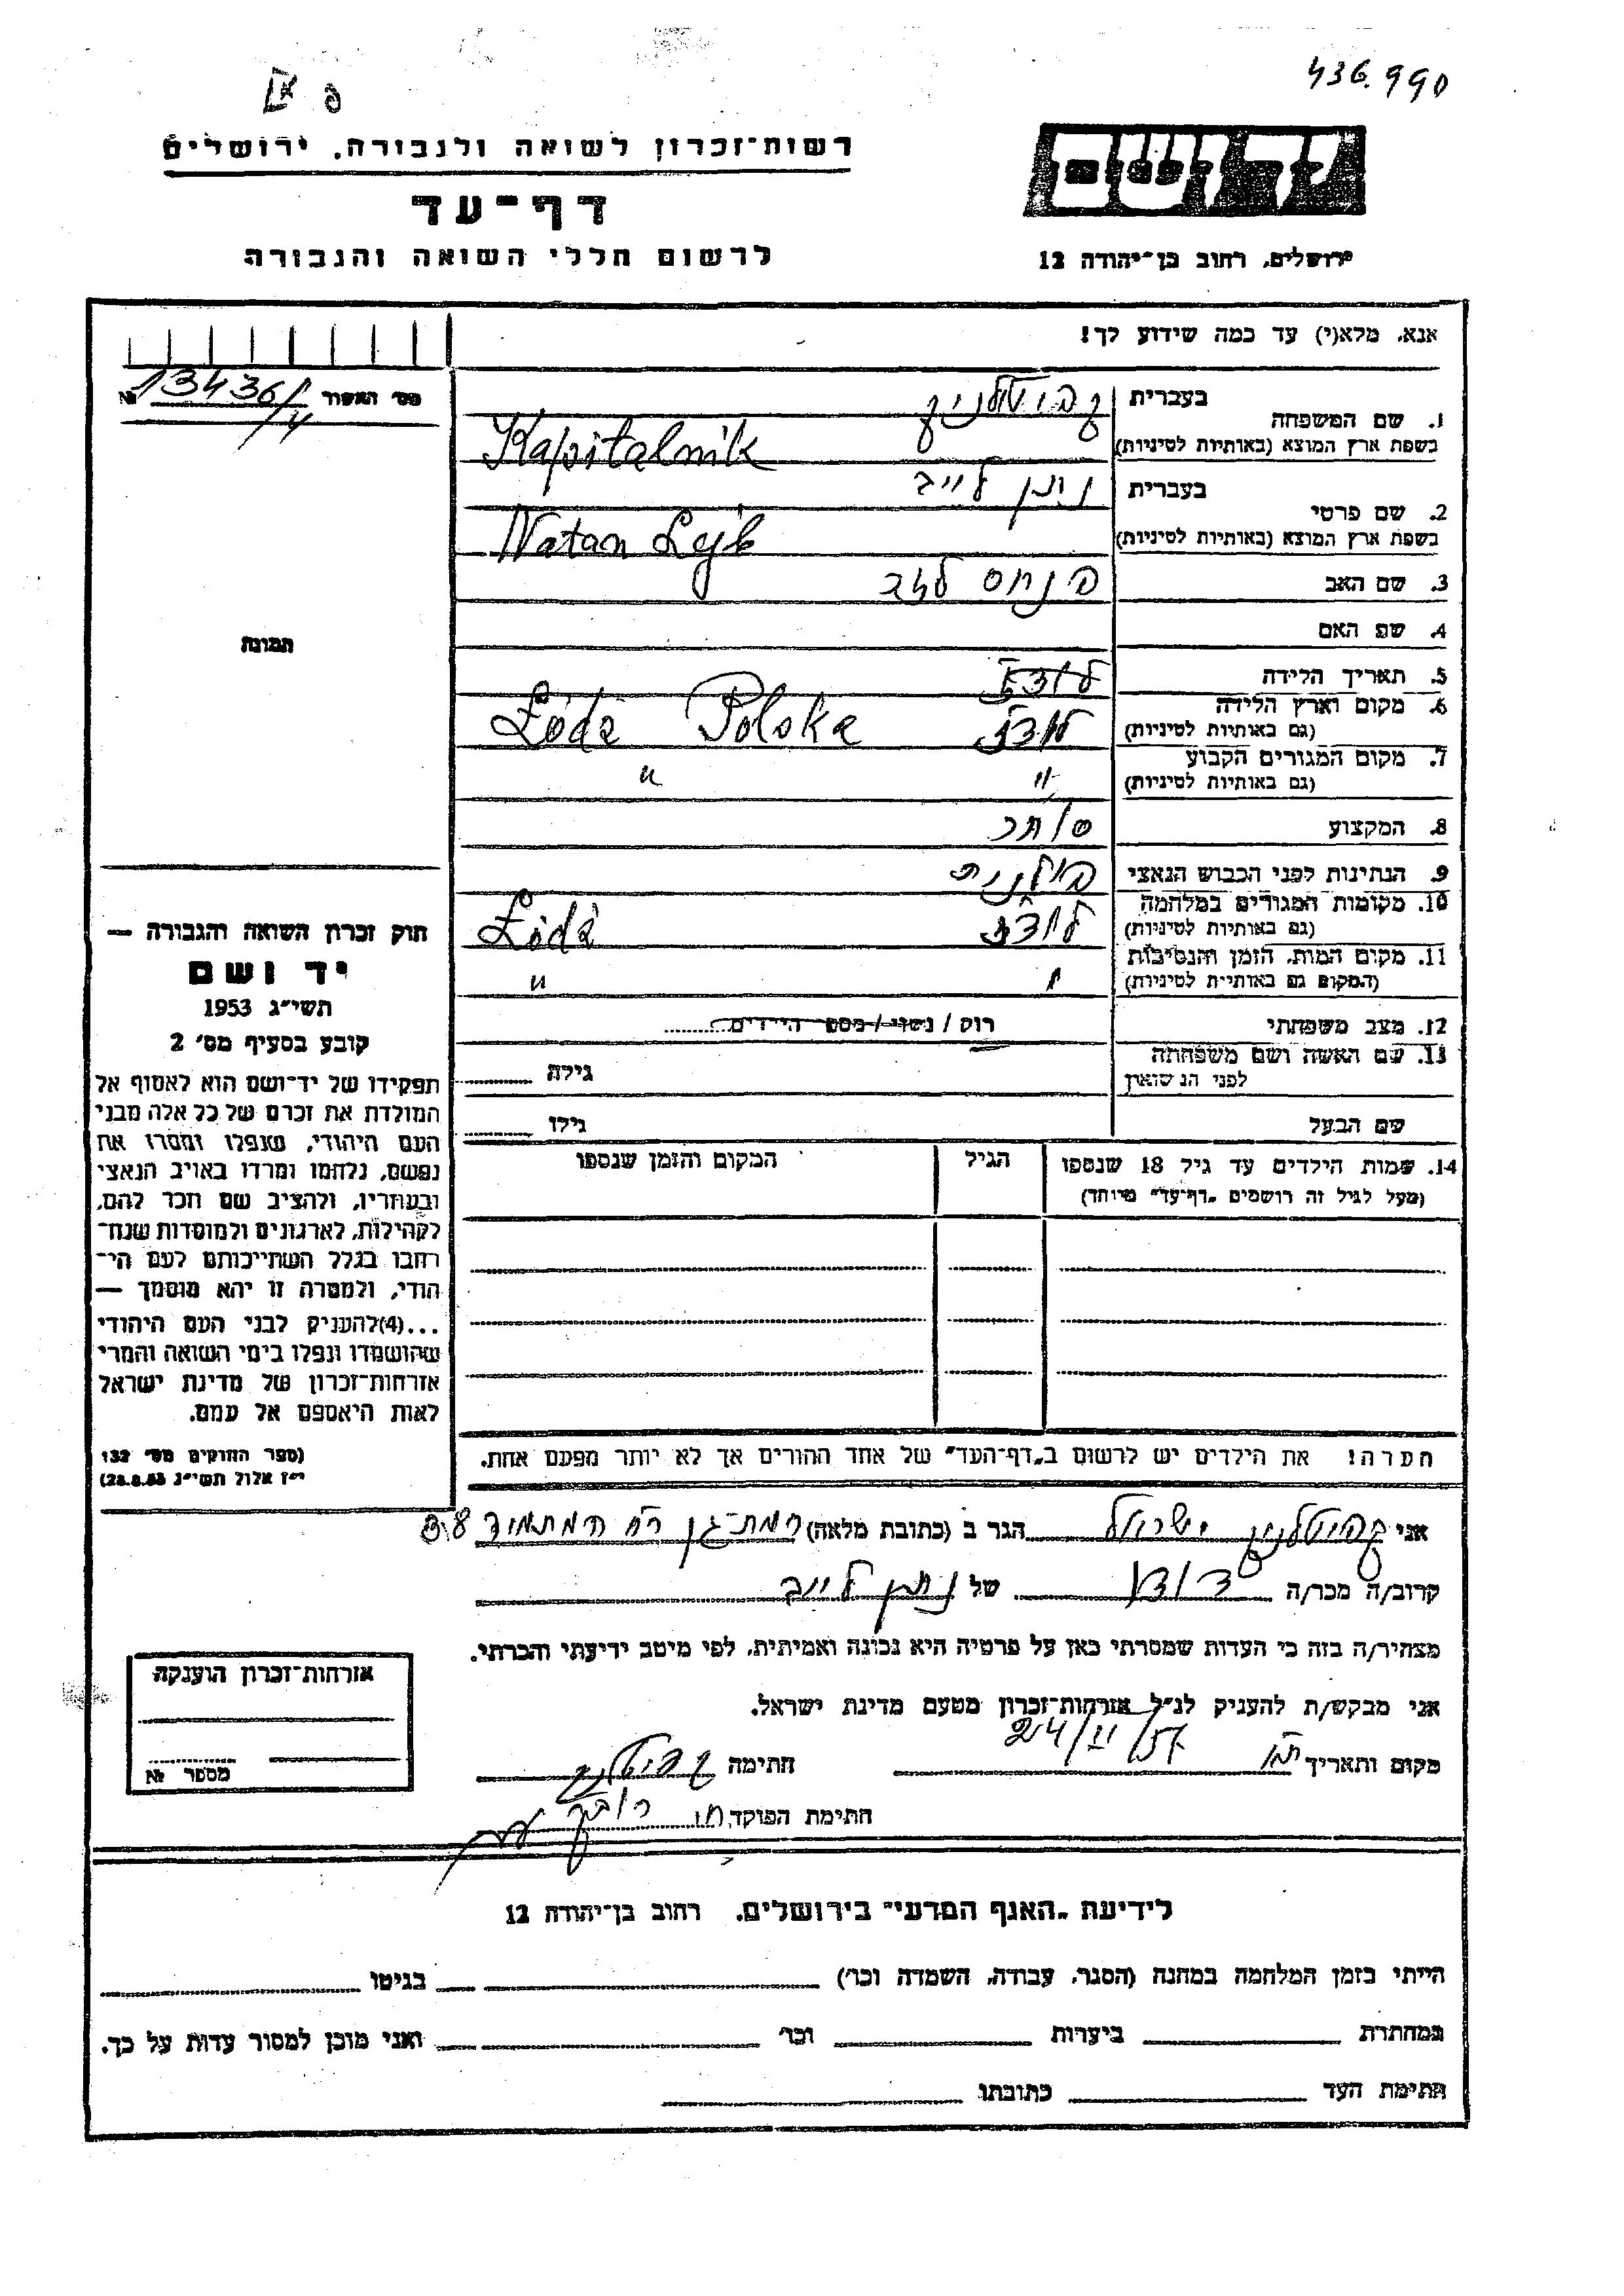 436.990
רשות־זכרון לשואה ולגבורה, ירושלים
דף־עד
לרשום חללי השואה והגבורה
יד ושם
ירושלים, רחוב בן־יהודה 12
אנא, מלא(י) עד כמה שידוע לך!
מס׳ האשור № 13436/
1. שם המשפחה בעברית קפיטלניק
בשפת ארץ המוצא (באותיות לטיניות) Kapitalnik
2. שם פרטי בעברית נתן לייב
בשפת ארץ המוצא (באותיות לטיניות) Natan Lejb
3. שם האב פנחס
4. שם האם
5. תאריך הלידה לודז׳
6. מקום וארץ הלידה (גם באותיות לטיניות) לודז׳ Łódź Polska
7. מקום המגורים הקבוע (גם באותיות לטיניות) " "
8. המקצוע סוחר
9. הנתינות לפני הכבוש הנאצי פולנית
10. מקומות המגורים במלחמה (גם באותיות לטיניות) לודז׳ Łódź
11. מקום המות, הזמן והנסיבות (המקום גם באותיות לטיניות) " "
12. מצב משפחתי רווק / נשוי / מספר הילדים
13. שם האשה ושם משפחתה לפני הנשואין גילה
שם הבעל גילו
14. שמות הילדים עד גיל 18 שנספו (מעל לגיל זה רושמים „דף־עד" מיוחד) הגיל המקום והזמן שנספו
הערה! את הילדים יש לרשום ב„דף־העד" של אחד ההורים אך לא יותר מפעם אחת.
תמונה
חוק זכרון השואה והגבורה —
יד ושם
תשי״ג 1953
קובע בסעיף מס׳ 2
תפקידו של יד־ושם הוא לאסוף אל
המולדת את זכרם של כל אלה מבני
העם היהודי, שנפלו ומסרו את
נפשם, נלחמו ומרדו באויב הנאצי
ובעוזריו, ולהציב שם וזכר להם,
לקהילות, לארגונים ולמוסדות שנח־
רבו בגלל השתייכותם לעם הי־
הודי, ולמטרה זו יהא מוסמך —
...(4)להעניק לבני העם היהודי
שהושמדו ונפלו בימי השואה והמרי
אזרחות־זכרון של מדינת ישראל
לאות היאספם אל עמם.
(ספר החוקים מס׳ 132
י״ז אלול תשי״ג 28.8.53)
אני קפיטלניק ישראל הגר ב (כתובת מלאה) רמת־גן רח המתמיד
קרוב/ה מכר/ה דודו של נתן לייב
מצהיר/ה בזה כי העדות שמסרתי כאן על פרטיה היא נכונה ואמיתית, לפי מיטב ידיעתי והכרתי.
אני מבקש/ת להעניק לנ״ל אזרחות־זכרון מטעם מדינת ישראל.
מקום ותאריך 24/II/57 חתימה קפיטלניק
חתימת הפוקד
אזרחות־זכרון הוענקה
מספר №
לידיעת „האגף המדעי" בירושלים, רחוב בן־יהודה 12
הייתי בזמן המלחמה במחנה (הסגר, עבודה, השמדה וכו׳) בגיטו
במחתרת ביערות וכו׳ ואני מוכן למסור עדות על כך.
חתימת העד כתובתו